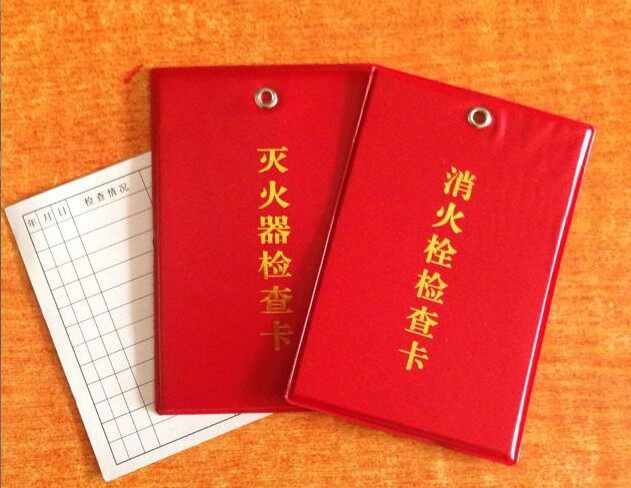 灭火器检查卡
消火栓检查卡
年 月 日 检查情况